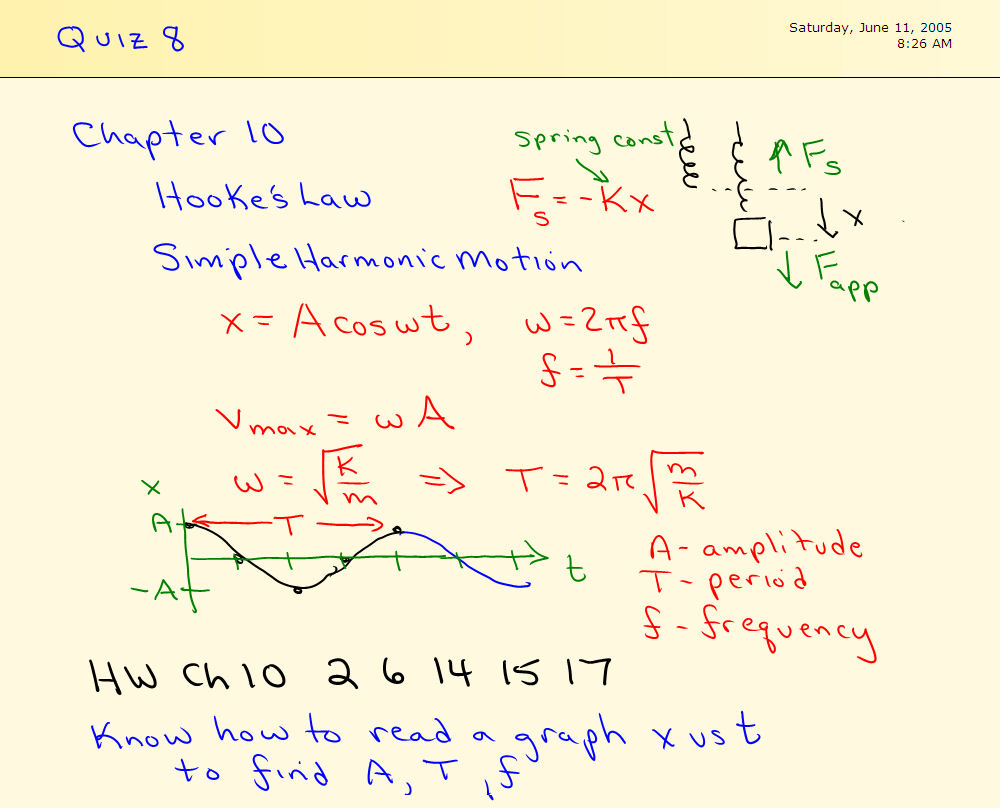 Quiz 8
Saturday, June 11, 2005
8:26 AM
Chapter 10
Spring const
Hooke's Law
F_s = -Kx
F_s
x
F_app
Simple Harmonic Motion
x = A cos ωt, ω = 2πf
f = 1/T
V_max = ωA
ω = √(K/m) => T = 2π√(m/K)
x
A
T
-A
t
A - amplitude
T - period
f - frequency
HW Ch 10 2 6 14 15 17
Know how to read a graph x vs t
to find A, T, f